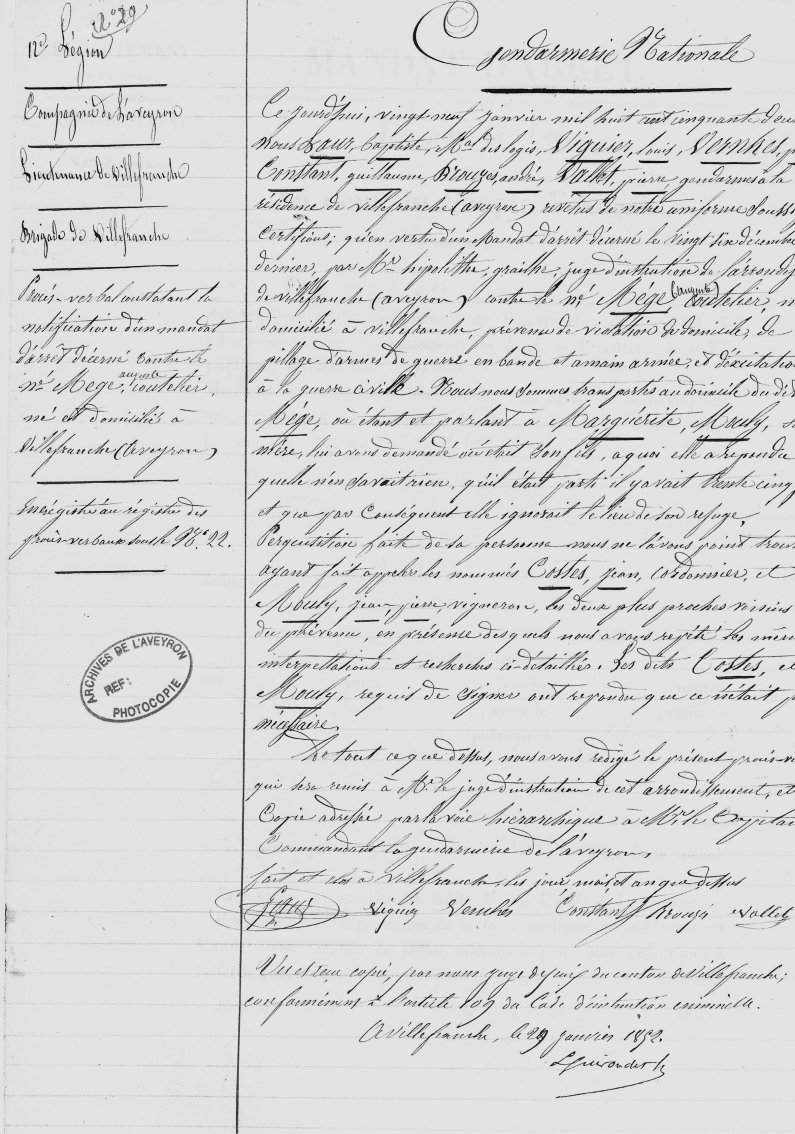 N° 29
12e Légion
Compagnie de l'aveyron
Lieutenance de Villefranche
Brigade de Villefranche
Procès-verbal constatant la
notification d'un mandat
d'arrêt décerné contre le
né Mege, auguste coutelier,
né et domicilié à
Villefranche (aveyron)
Enregistré au régistre des
procès-verbaux sous le N° 22.
ARCHIVES DE L'AVEYRON
REF:
PHOTOCOPIE
Gendarmerie Nationale
Ce jourd'hui, vingt neuf janvier mil huit cent cinquante deux
nous baptiste, Mal des logis, Viguier, louis, Vernhes,
Constant, guillaume, Brouzes, andré, Vallet, pierre, gendarmes à la
résidence de villefranche (aveyron) revêtus de notre uniforme
Certifions; qu'en vertu d'un Mandat d'arrêt décerné le vingt six décembre
dernier, par Mr hipolithe, graille, juge d'instruction de l'arrondis
de villefranche (aveyron) contre le né Mége (auguste) coutelier, né
domicilié à villefranche, prévenu de violation de domicile, de
pillage d'armes de guerre en bande et amain armée, et d'éxcitation
à la guerre civile. Nous nous sommes transportés au domicile du dit
Mége, où étant et parlant à Marguérite, Mouly, sa
mère, lui avons demandé où était son fils, a quoi elle a repondu
quelle n'en savait rien, qu'il était parti il y avait trente cinq
et que par Conséquent elle ignorait le lieu de son refuge,
Perquisition faite de sa personne nous ne l'avons point trouvé
ayant fait appeler les nommés Costes, jean, cordonnier, et
Mouly, jean-pierre vigneron, les deux plus proches voisins
du prévenu, en présence desquels nous avons repété les mêmes
interpellations et recherches ci-detaillées. Les dits Costes, et
Mouly, requis de signer ont repondu que ce n'était pas
nécessaire.
De tout ce que dessus, nous avons redigé le présent procès-ver
qui sera remis à Mr le juge d'instruction de cet arrondissement, et
Copie adressée par la voie hiérarchique à Mr le Capitaine
Commandant la gendarmerie de l'aveyron,
fait et clos à villefranche, les jour mois, et an que dessus
Viguier Vernhes Constant Brouzes Vallet
Vu et copié, par nous juge de paix du canton de villefranche;
conformément à l'article 109 du Code d'instruction criminelle.
A villefranche, le 29 janvier 1852.